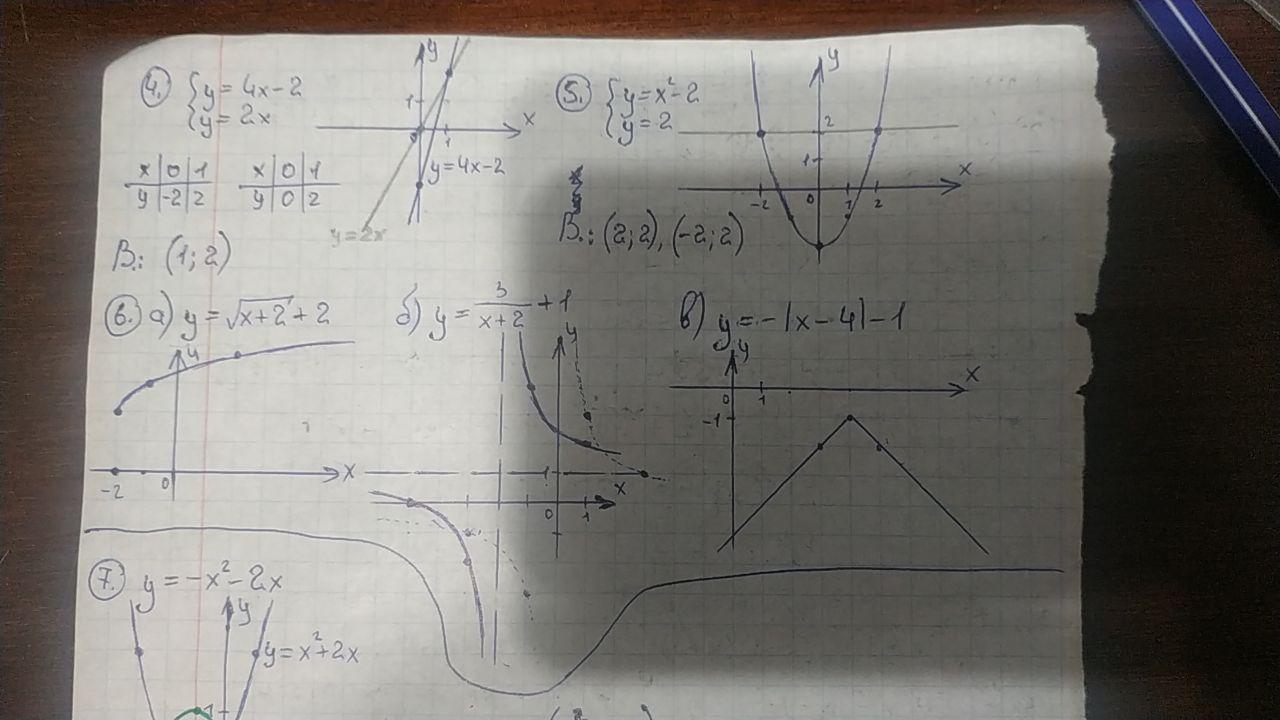 4. { y = 4x-2
{ y = 2x
x | 0 | 1
y | -2 | 2
x | 0 | 1
y | 0 | 2
В.: (1; 2)
y
1
x
0
1
y=4x-2
y=2x
5. { y=x²-2
{ y=2
В.: (2; 2), (-2; 2)
y
2
1
x
-2
0
1
2
6. а) y = √(x+2) + 2
y
x
-2
0
б) y = 3/(x+2) + 1
y
1
x
0
1
в) y = -|x-4|-1
y
x
0
1
-1
7. y = -x²-2x
y
y=x²+2x
1